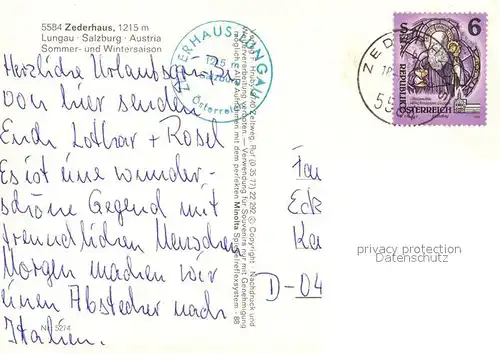 5584 Zederhaus, 1215 m
Lungau · Salzburg · Austria
Sommer- und Wintersaison
Herzliche Urlaubsgrüße
von hier senden
Euch Lothar + Rosel
Es ist eine wunder-
schöne Gegend mit
freundlichen Menschen
Morgen machen wir
einen Abstecher nach
Italien.
Nr. 5274
ZEDERHAUS-LUNGAU
1215
Österreich
Zeltweg, Ruf (0 35 77) 22 292 © Copyright · Nachdruck und
Weiterverarbeitung verboten. — Verwendung für Souvenirs nur mit Genehmigung
Aufnahmen mit dem perfekten Minolta Spiegelreflexsystem · 88
ZED
6
REPUBLIK
ÖSTERREICH
Eck
Ka
D-04
privacy protection
Datenschutz